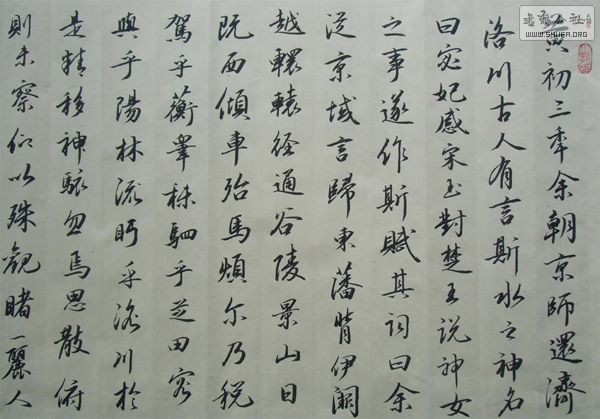 黄初三年余朝京師還濟
洛川古人有言斯水之神名
曰宓妃感宋玉對楚王說神女
之事遂作斯賦其詞曰余
從京域言歸東藩背伊闕
越轘轅經通谷陵景山日
既西傾車殆馬煩尔乃税
駕乎蘅皋秣駟乎芝田容
與乎陽林流眄乎洛川於
是精移神駭忽焉思散俯
則未察仰以殊觀睹一麗人
WWW.SHUFA.ORG